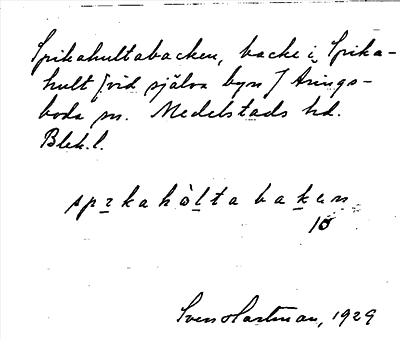 Spikahultabacken, backe i Spika-
hult [vid själva byn] Arings-
boda sn. Medelstads hd.
Blek.l.
spɩkahòltabakɐn
10
Sven Hartman, 1929